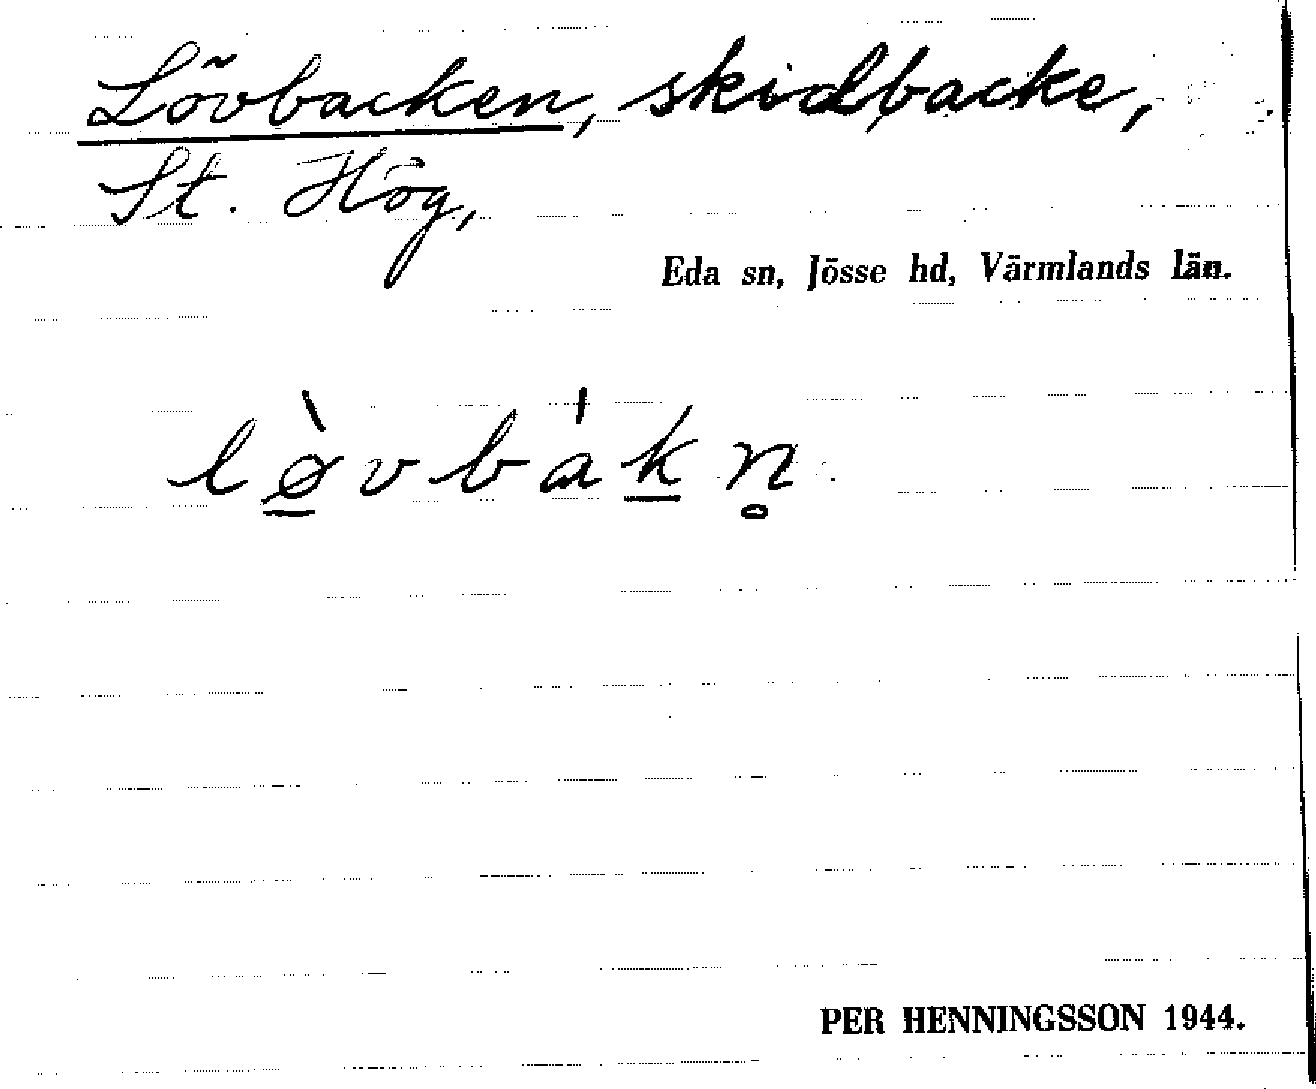 Lövbacken, skidbacke,
St. Hög,
Eda sn, Jösse hd, Värmlands län.
lø̱̀vbákṉ̥
PER HENNINGSSON 1944.